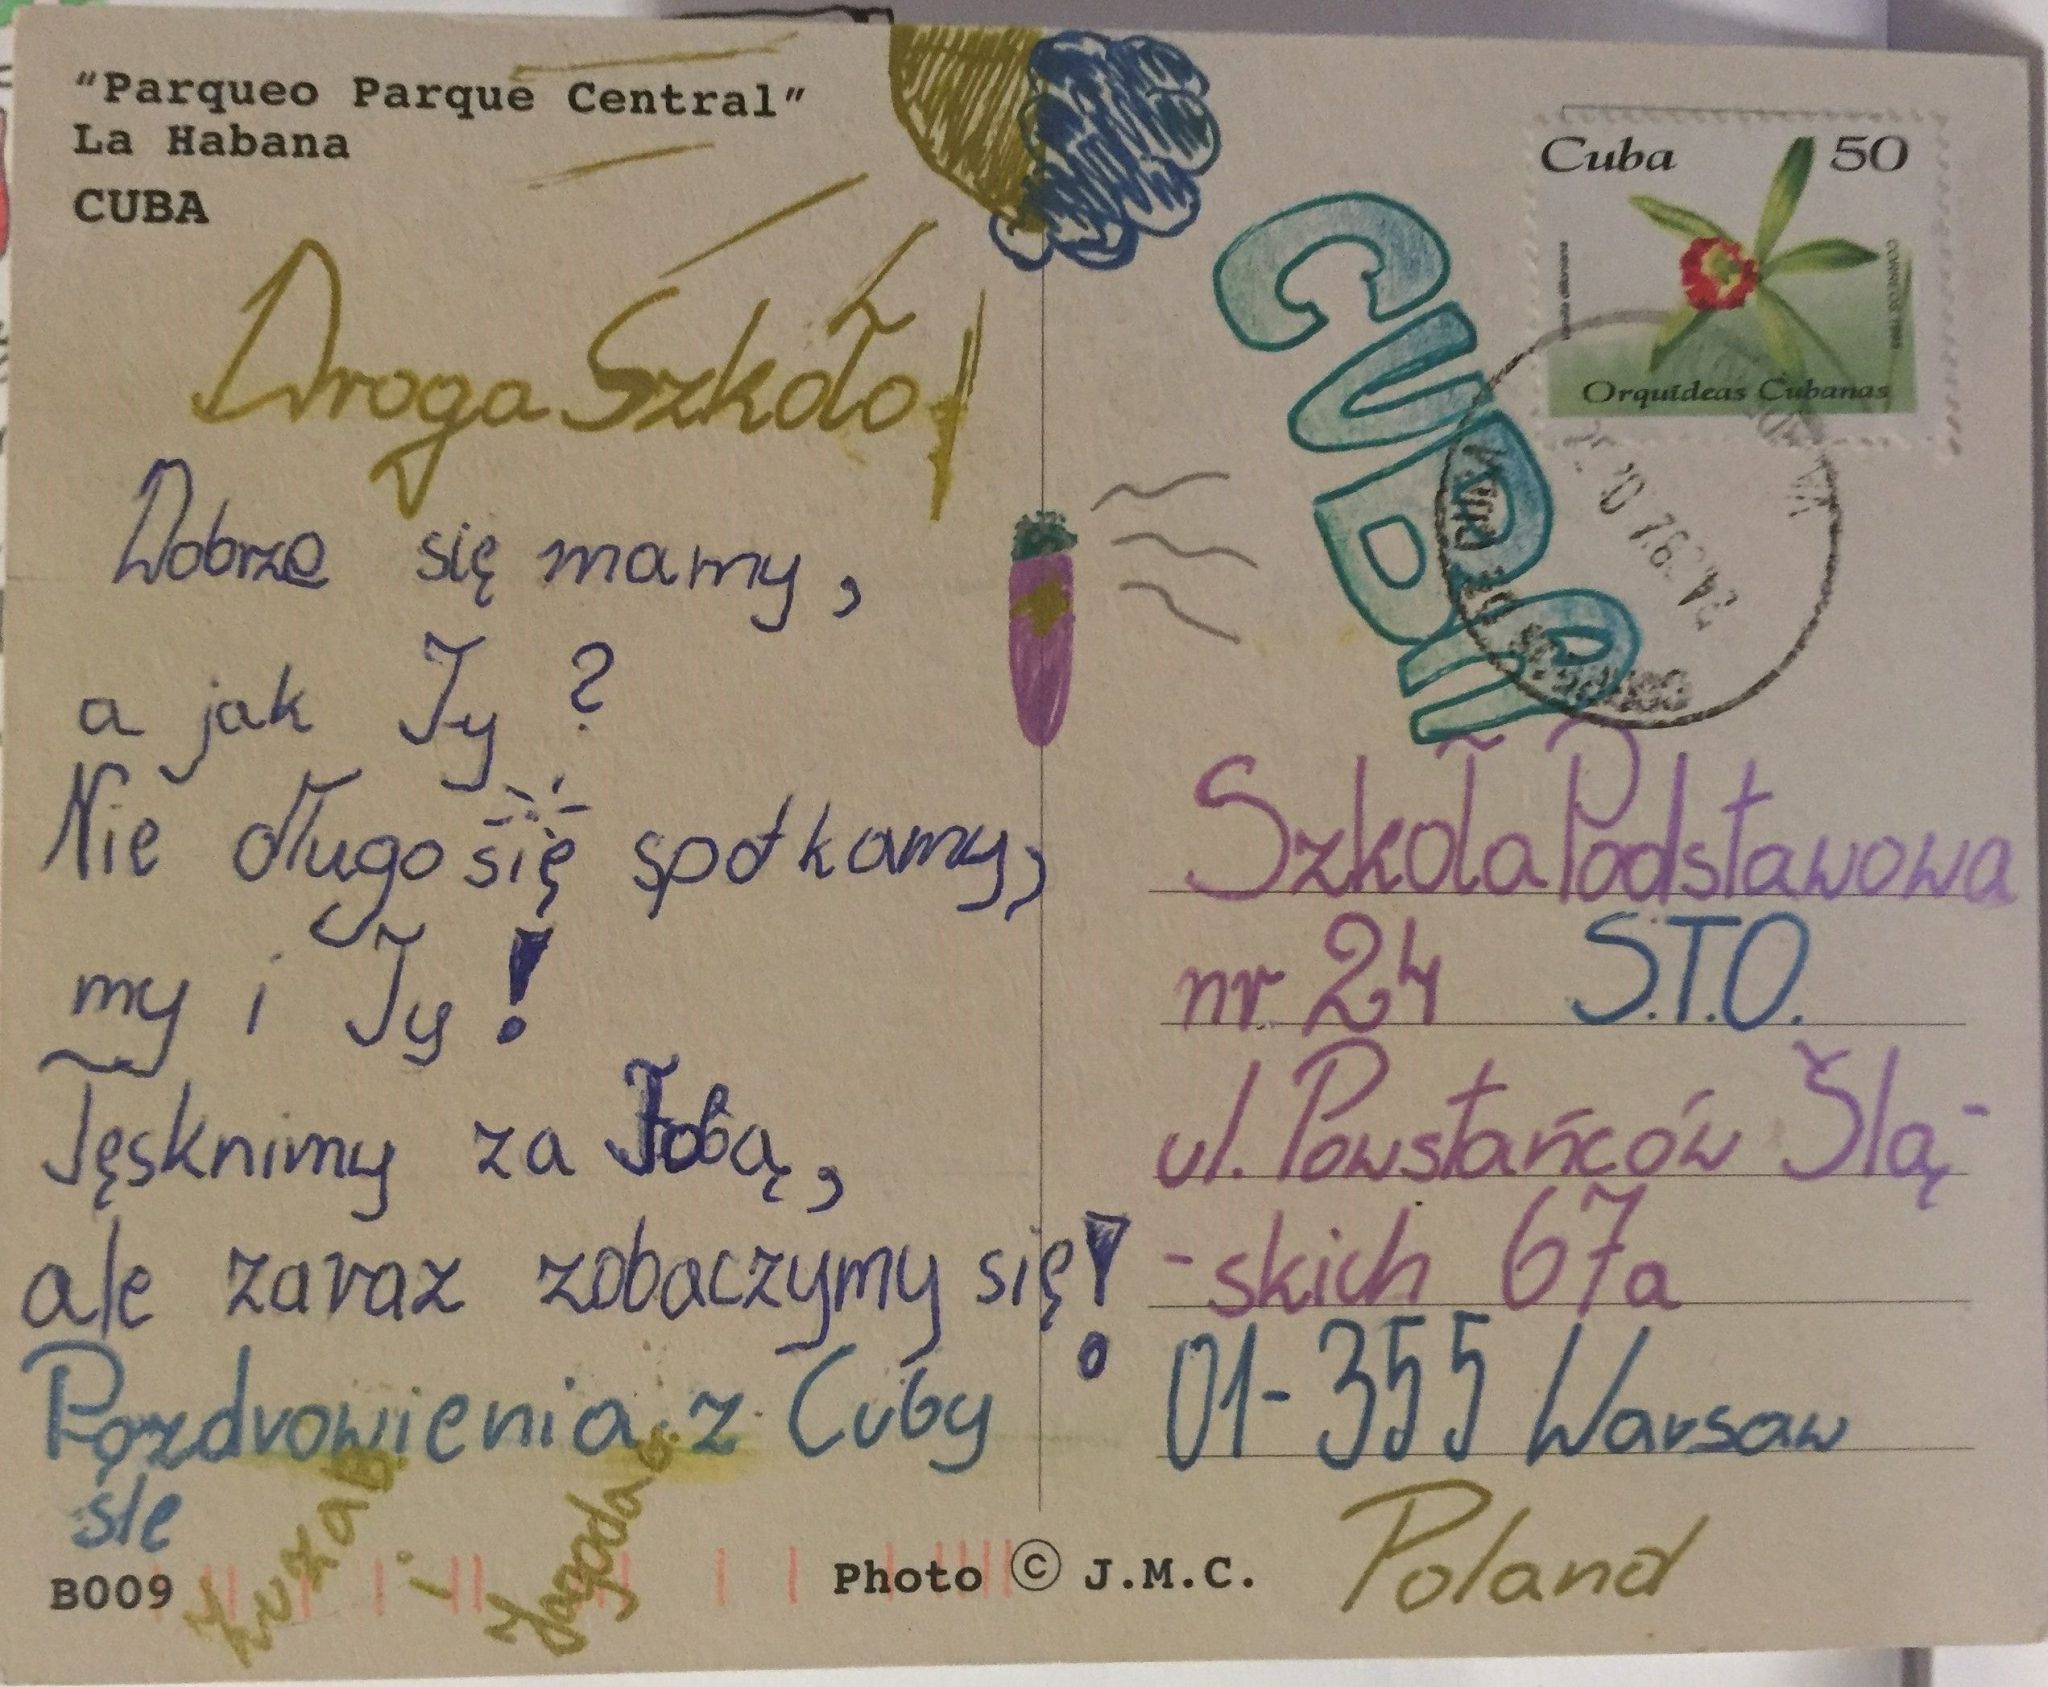 "Parqueo Parque Central"
La Habana
CUBA
Droga Szkoło!
Dobrze się mamy,
a jak Ty?
Nie długo się spotkamy,
my i Ty!
Tęsknimy za Tobą,
ale zaraz zobaczymy się!
Pozdrowienia z Cuby
śle
Zuza B.
i
Jagoda G.
B009
Photo © J.M.C.
Cuba 50
Orquídeas Cubanas
CUBA
Szkoła Podstawowa
nr 24 S.T.O.
ul. Powstańców Ślą-
-skich 67a
01-355 Warsaw
Poland